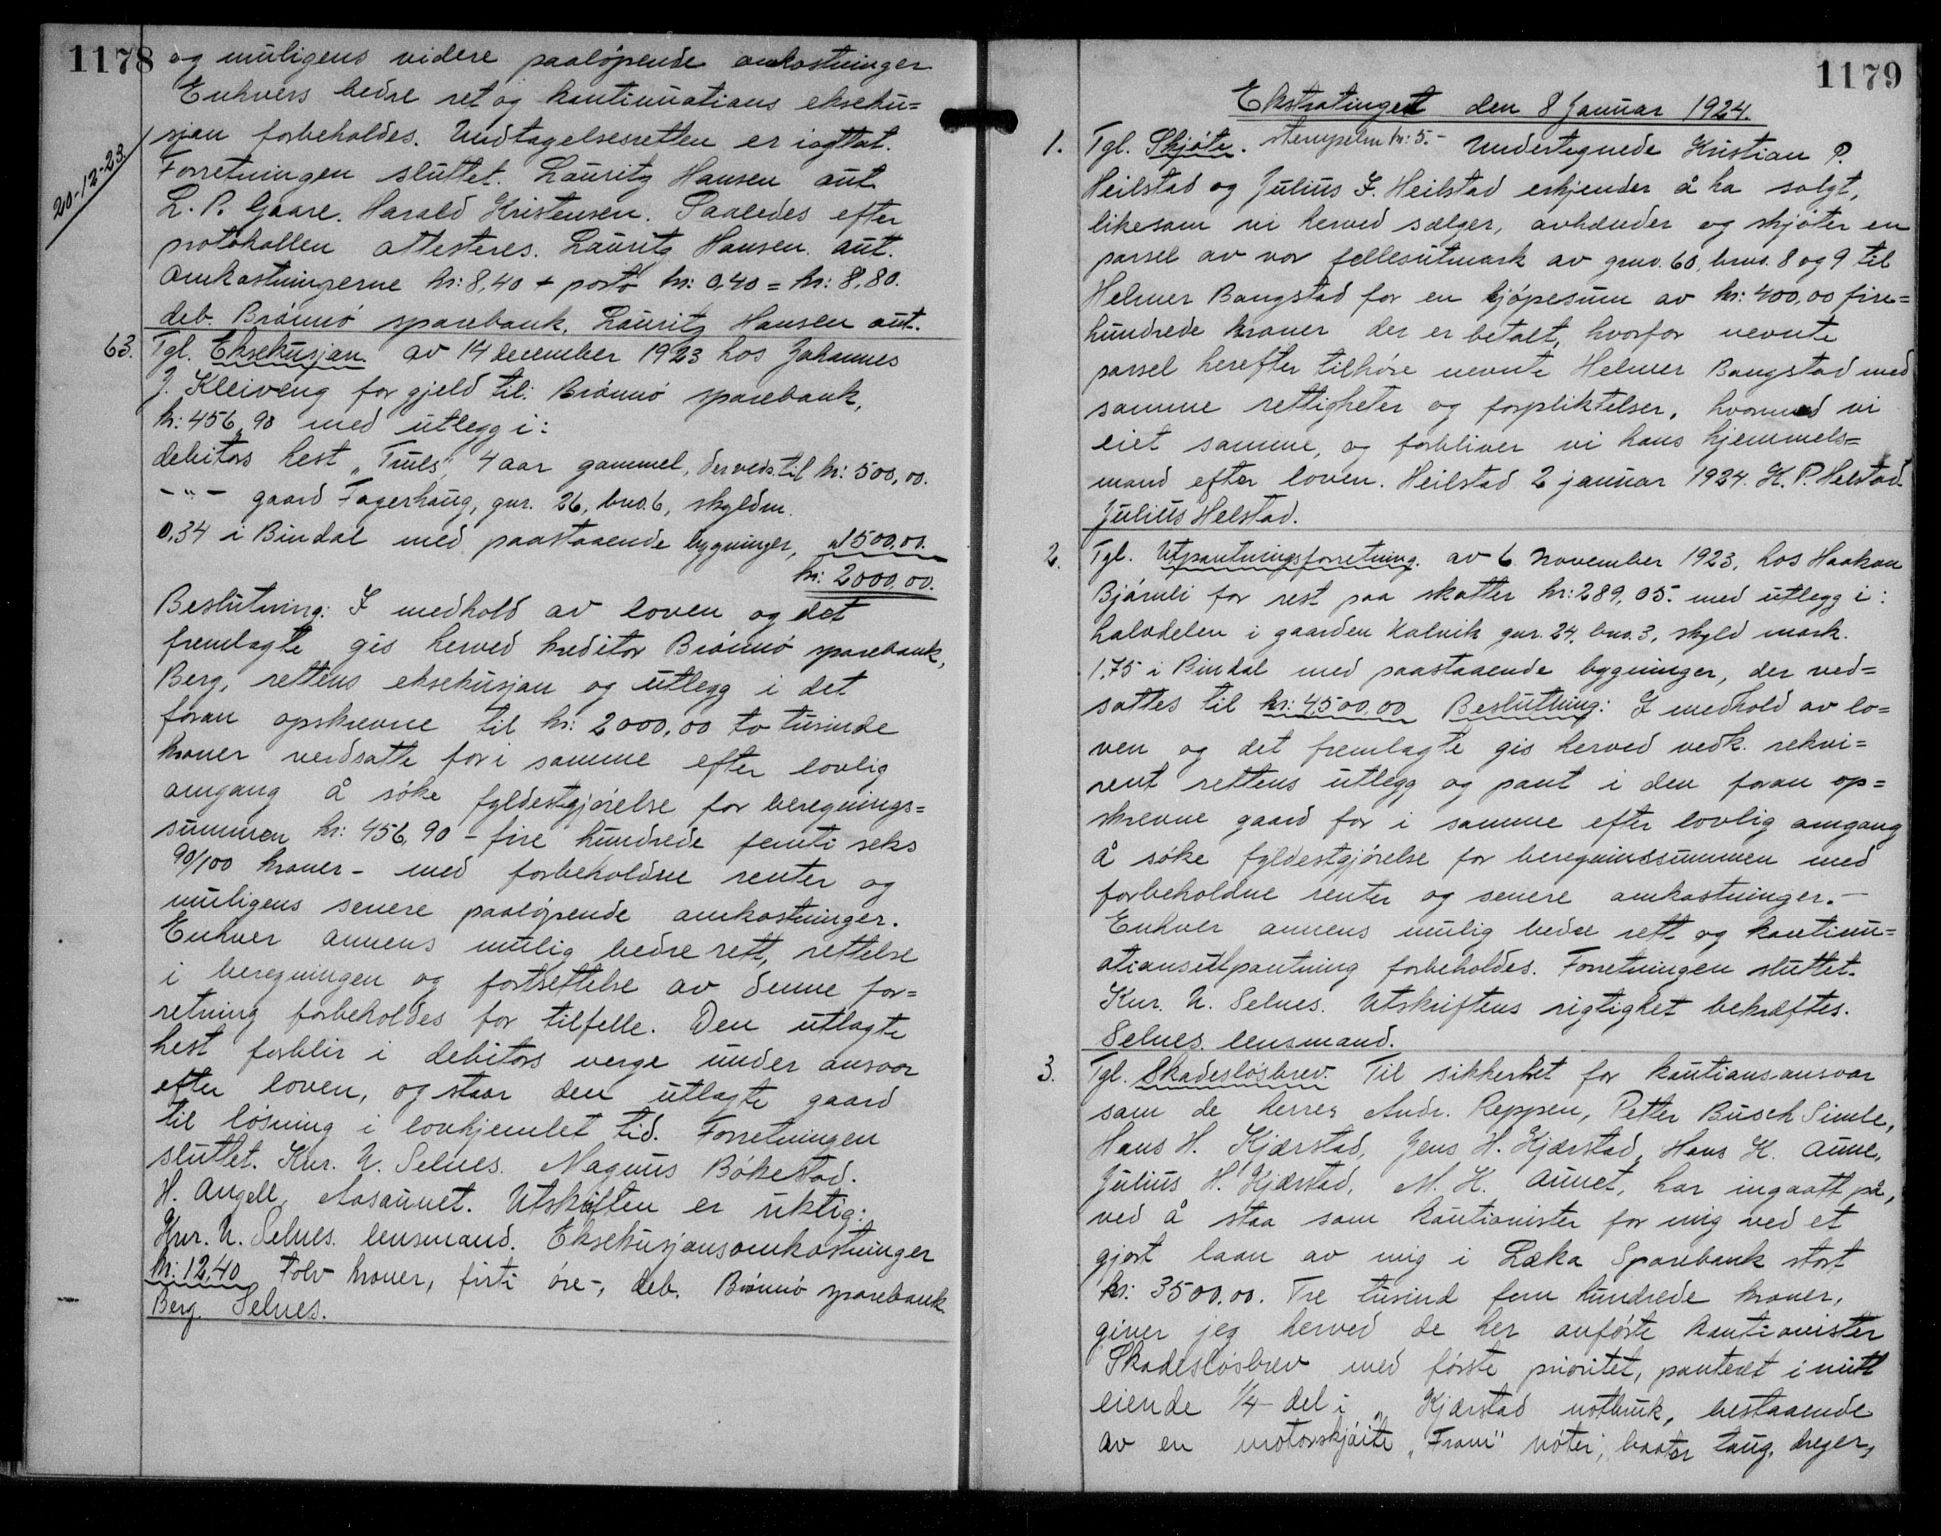 1178
og muligens videre paaløpende omkostninger
Enhvers bedre ret og kontinuations ekseku=
sjon forbeholdes. Undtagelsesretten er iagttat.
20-12-23
Forretningen sluttet. Lauritz Hansen aut.
L. P. Gaare. Harald Kristensen. Saaledes efter
protokollen attesteres. Lauritz Hansen. aut.
Omkostningerne kr: 8,40 + porto kr: 0,40 = kr: 8,80.
deb. Brønnø sparebank. Lauritz Hansen aut.
63. Tgl. Eksekusjon av 14 december 1923 hos Johannes
J. Kleiveng for gjeld til: Brønnø sparebank,
kr: 456,90 med utlegg i:
debitors hest „Truls" 4 aar gammel, der veds. til kr: 500,00.
-"- gaard Fagerhaug, gnr. 26, bno. 6, skyldm.
0,34 i Bindal med paastaaende bygninger, 1500,00.
kr: 2000,00.
Beslutning: I medhold av loven og det
fremlagte gis herved kreditor Brønnø sparebank,
Berg, rettens eksekusjon og utlegg i det
foran opskrevne til kr: 2000,00 to tusinde
kroner verdsatte for i samme efter lovlig
omgang å søke fyldestgjørelse for beregnings=
summen kr: 456,90 - fire hundrede femti seks
90/100 kroner - med forbeholdne renter og
muligens senere paaløpende omkostninger.
Enhver annens mulig bedre rett, rettelse
i beregningen og fortsettelse av denne for=
retning forbeholdes for tilfelle. Den utlagte
hest forblir i debitors verge under ansvar
efter loven, og staar den utlagte gaard
til løsning i lovhjemlet tid. Forretningen
sluttet. Knr. N. Selnes. Magnus Bøkestad.
H. Angell, Aasaunet. Utskriften er riktig:
Knr. N. Selnes. lensmand. Eksekusjonsomkostninger
kr: 12,40 Tolv kroner, firti øre -, deb. Brønnø sparebank
Berg. Selnes.
1179
Ekstratinget den 8 Januar 1924.
1. Tgl. Skjøte. stempelm kr: 5.- Undertegnede Kristian P.
Heilstad og Julius F. Heilstad erkjender å ha solgt,
likesom vi herved sælger, avhænder og skjøter en
parsel av vor fellesutmark av gnr. 60, bno. 8 og 9 til
Helmer Bangstad for en kjøpesum av kr: 400,00 fire=
hundrede kroner der er betalt, hvorfor nevnte
parsel herefter tilhøre nevnte Helmer Bangstad med
samme rettigheter og forpliktelser, hvormed vi
eiet samme, og forbliver vi hans hjemmels=
mand efter loven. Heilstad 2 januar 1924. K. P. Helstad.
Julius Helstad.
2. Tgl. Utpantningsforretning. av 6 november 1923, hos Haakon
Bjørnli for rest paa skatter kr: 289,05.- med utlegg i:
halvdelen i gaarden Kalvik gnr. 24, bno. 3, skyld mark.
1,75 i Bindal med paastaaende bygninger, der ved=
sattes til kr: 4500,00 Beslutning: I medhold av lo=
ven og det fremlagte gis herved vedk. rekvi=
rent rettens utlegg og pant i den foran op=
skrevne gaard for i samme efter lovlig omgang
å søke fyldestgjørelse for beregninssummen med
forbeholdne renter og senere omkostninger. -
Enhver annens mulig bedre rett og kontinu=
ationsutpantning forbeholdes. Forretningen sluttet.
Knr. N. Selnes. Utskriftens rigtighet bekræftes.
Selnes. lensmand.
3. Tgl. Skadesløsbrev. Til sikkerhet for kautionsansvar
som de herrer Andr. Reppen, Petter Busch Simle,
Hans H. Kjærstad, Jens H. Kjærstad, Hans K. Aune,
Julius H. Kjærstad, M. H. Aunet, har ingaatt på,
ved å staa som kautionister for mig ved et
gjort laan av mig i Leka Sparebank stort
kr: 3500,00. Tre tusind fem hundrede kroner,
giver jeg herved de her anførte kautionister
Skadesløsbrev med første prioritet, panteret i mitt
eiende 1/4 del i „Kjærstad notbruk, bestaaende
av en motorskjøite „Fram" nøter, baater taug, dreger,